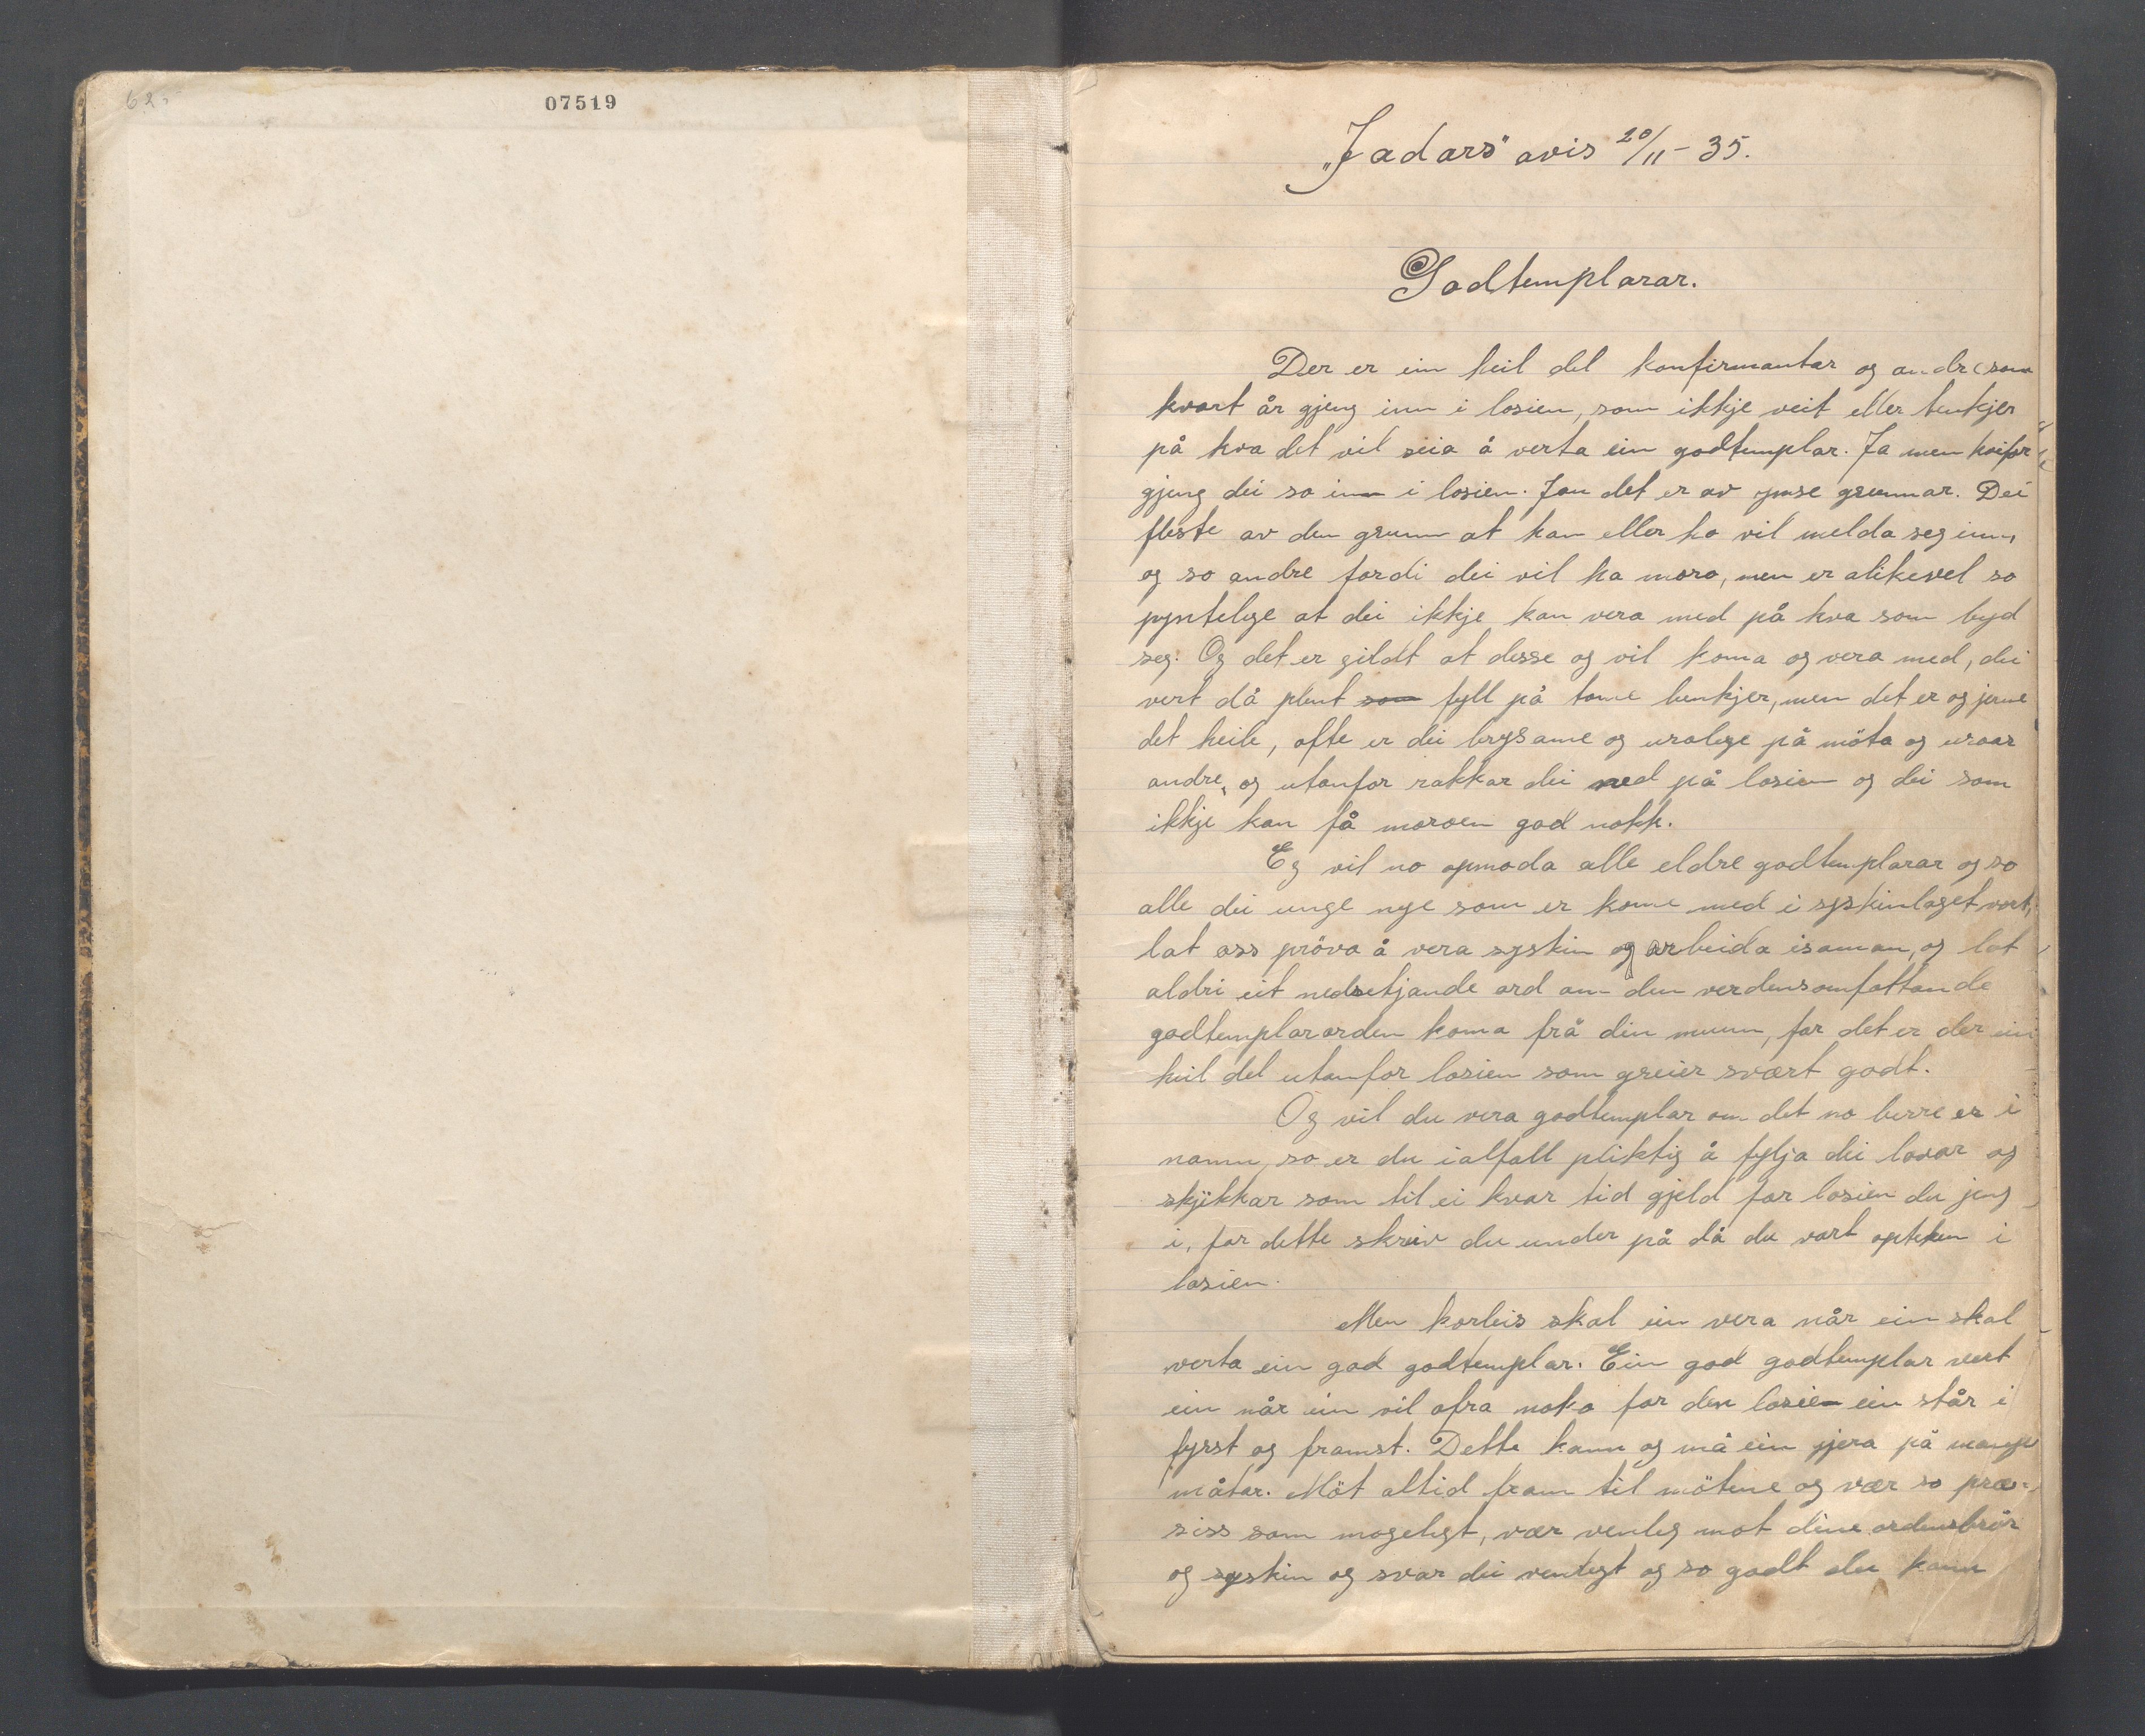 62.-
07519
"Jadars" avis 20/11-35.
Godtemplarar.
Der er ein heil del konfirmantar og andre som
kvart år gjeng inn i losien, som ikkje veit eller tenkjer
på kva det vil seia å verta ein godtemplar. Ja men kvifor
gjeng dei so inn i losien. Jau det er av ymse grunnar. Dei
fleste av den grunn at han eller ho vil melda seg inn,
og so andre fordi dei vil ha moro, men er alikevel so
pyntelege at dei ikkje kan vera med på kva som byd
seg. Og det er gildt at desse og vil koma og vera med, dei
vert då plent som fyll på tome benkjer, men det er og jerne
det heile, ofte er dei brysame og urolege på möta og uroar
andre, og utanfor rakkar dei ned på losien og dei som
ikkje kan få moroen god nokk.
Eg vil no opmoda alle eldre godtemplarar og so
alle dei unge nye som er kome med i syskinlaget vort,
lat oss pröva å vera syskin og arbeida isaman, og lat
aldri eit nedsetjande ord om den verdensomfattande
godtemplarorden koma frå din munn, for det er der ein
heil del utanfor losien som greier svært godt.
Og vil du vera godtemplar om det no berre er i
namn, so er du ialfall pliktig å fylja dei lovar og
skjikkar som til ei kvar tid gjeld for losien du jeng
i, for dette skreiv du under på då du vart opteken i
losien.
Men korleis skal ein vera når ein skal
verta ein god godtemplar. Ein god godtemplar vert
ein når ein vil ofra noko for den losien ein står i
fyrst og framst. Dette kann og må ein gjera på mange
måtar. Möt altid fram til mötene og vær so præ-
siss som mogelegt, vær venleg mot dine ordensbrör
og syskin og svar dei venlegt og so godt du kann